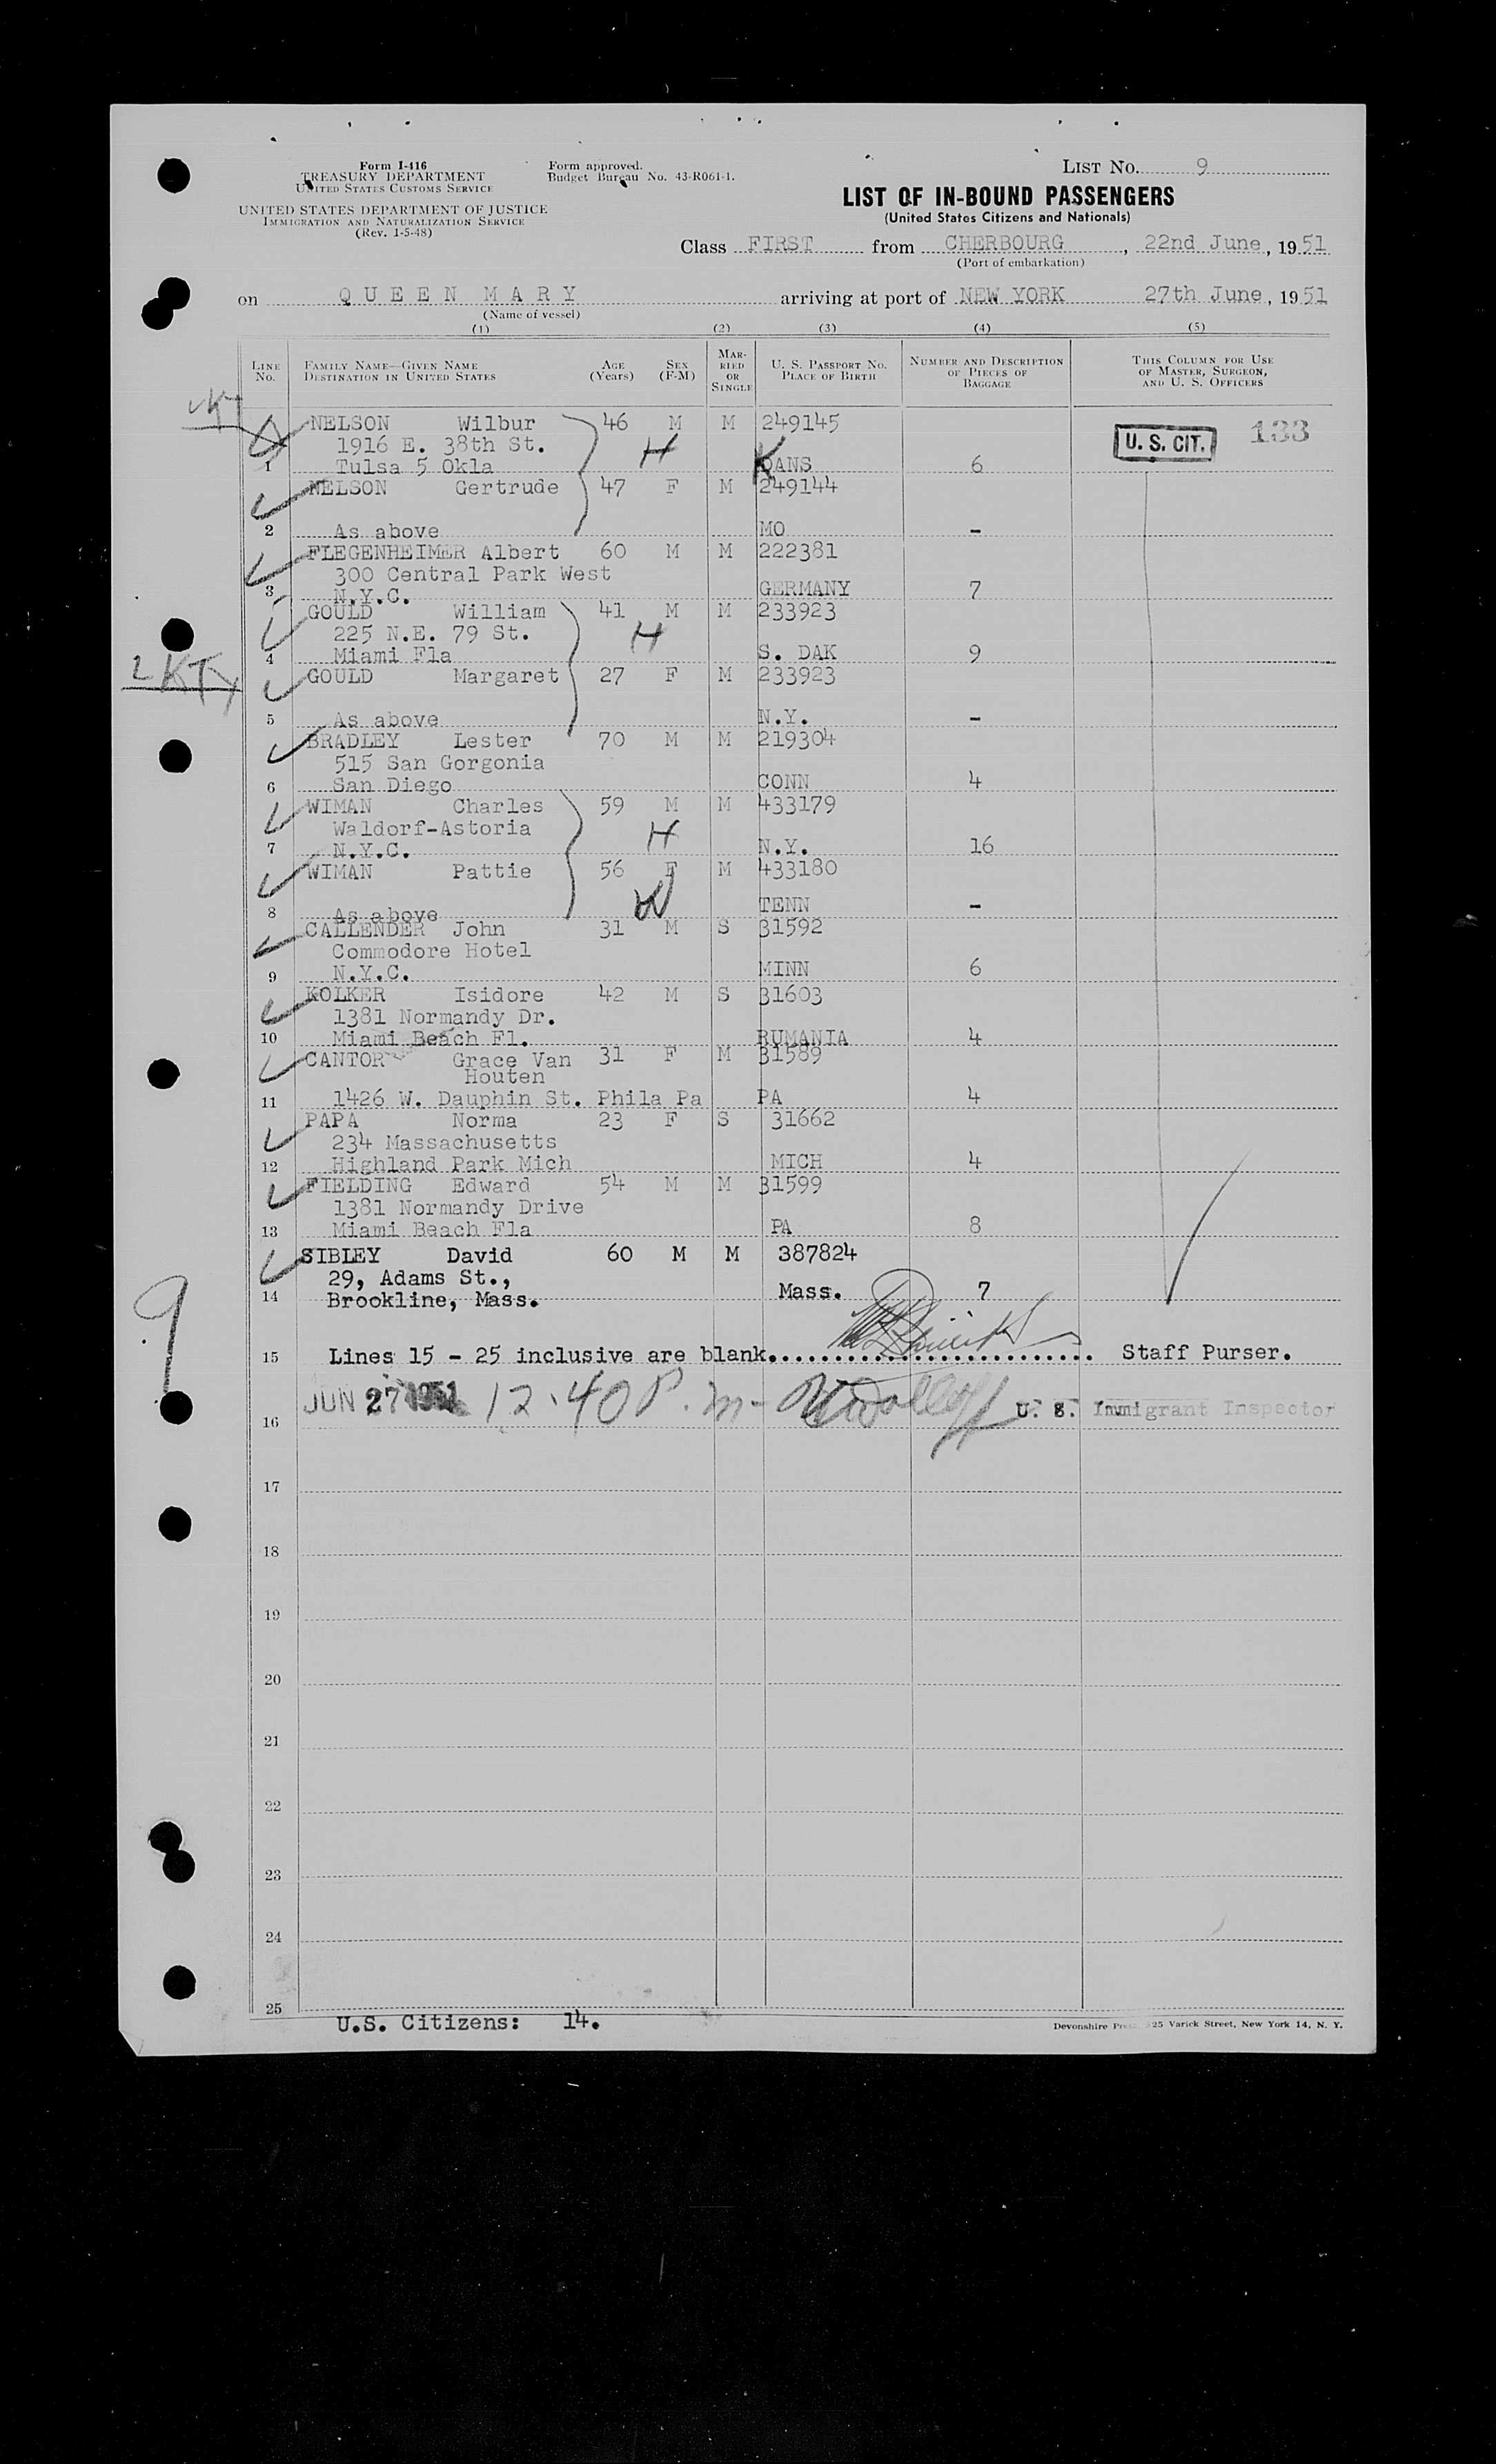 Form I-416
TREASURY DEPARTMENT
UNITED STATES CUSTOMS SERVICE
UNITED STATES DEPARTMENT OF JUSTICE
IMMIGRATION AND NATURALIZATION SERVICE
(Rev. 1-5-48)
Form approved.
Budget Bureau No. 43-R061-1.
LIST NO. 9
LIST OF IN-BOUND PASSENGERS
(United States Citizens and Nationals)
Class FIRST from CHERBOURG, 22nd June, 1951
(Port of embarkation)
on QUEEN MARY arriving at port of NEW YORK 27th June, 1951
(Name of vessel)
(1) (2) (3) (4) (5)
LINE NO. FAMILY NAME—GIVEN NAME DESTINATION IN UNITED STATES AGE (Years) SEX (F-M) MARRIED OR SINGLE U. S. PASSPORT NO. PLACE OF BIRTH NUMBER AND DESCRIPTION OF PIECES OF BAGGAGE THIS COLUMN FOR USE OF MASTER, SURGEON, AND U. S. OFFICERS
NELSON Wilbur 46 M M 249145 U. S. CIT. 133
1916 E. 38th St. H
1 Tulsa 5 Okla KANS 6
NELSON Gertrude 47 F M 249144
2 As above MO -
FLEGENHEIMER Albert 60 M M 222381
300 Central Park West
3 N.Y.C. GERMANY 7
GOULD William 41 M M 233923
225 N.E. 79 St. H
4 Miami Fla S. DAK 9
GOULD Margaret 27 F M 233923
5 As above N.Y. -
BRADLEY Lester 70 M M 219304
515 San Gorgonia
6 San Diego CONN 4
WIMAN Charles 59 M M 433179
Waldorf-Astoria H
7 N.Y.C. N.Y. 16
WIMAN Pattie 56 F M 433180
W
8 As above TENN -
CALLENDER John 31 M S 31592
Commodore Hotel
9 N.Y.C. MINN 6
KOLKER Isidore 42 M S 31603
1381 Normandy Dr.
10 Miami Beach Fl. RUMANIA 4
CANTOR Grace Van 31 F M 31589
Houten
11 1426 W. Dauphin St. Phila Pa PA 4
PAPA Norma 23 F S 31662
234 Massachusetts
12 Highland Park Mich MICH 4
FIELDING Edward 54 M M 31599
1381 Normandy Drive
13 Miami Beach Fla PA 8
SIBLEY David 60 M M 387824
29, Adams St.,
14 Brookline, Mass. Mass. 7
9
15 Lines 15 - 25 inclusive are blank.............................. Staff Purser.
JUN 27 1951 12.40 P.m-
16 U. S. Immigrant Inspector
17
18
19
20
21
22
23
24
25
U.S. Citizens: 14.
Devonshire 25 Varick Street, New York 14, N. Y.